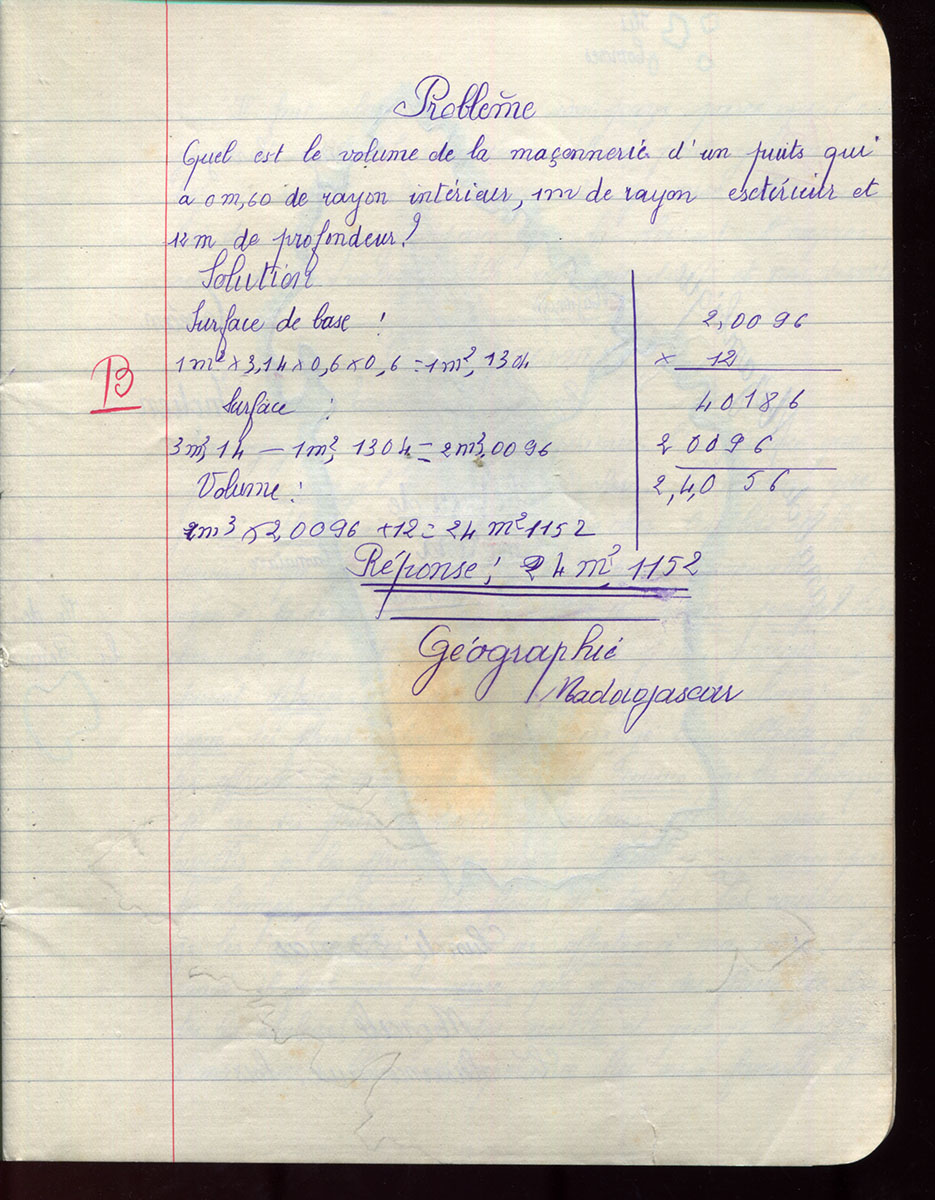 Problème
Quel est le volume de la maçonnerie d'un puits qui
a 0m,60 de rayon intérieur, 1m de rayon esctérieur et
12m de profondeur?
Solution
Surface de base :
1m² × 3,14 × 0,6 × 0,6 = 1m², 1304
B
Surface :
3m², 14 — 1m², 1304 = 2m², 0096
Volume :
1m³ × 2,0096 × 12 = 24 m² 1152
Réponse : 24 m³, 1152
2,0096
× 12
40186
20096
2,4,0 56
Géographie
Madagascar